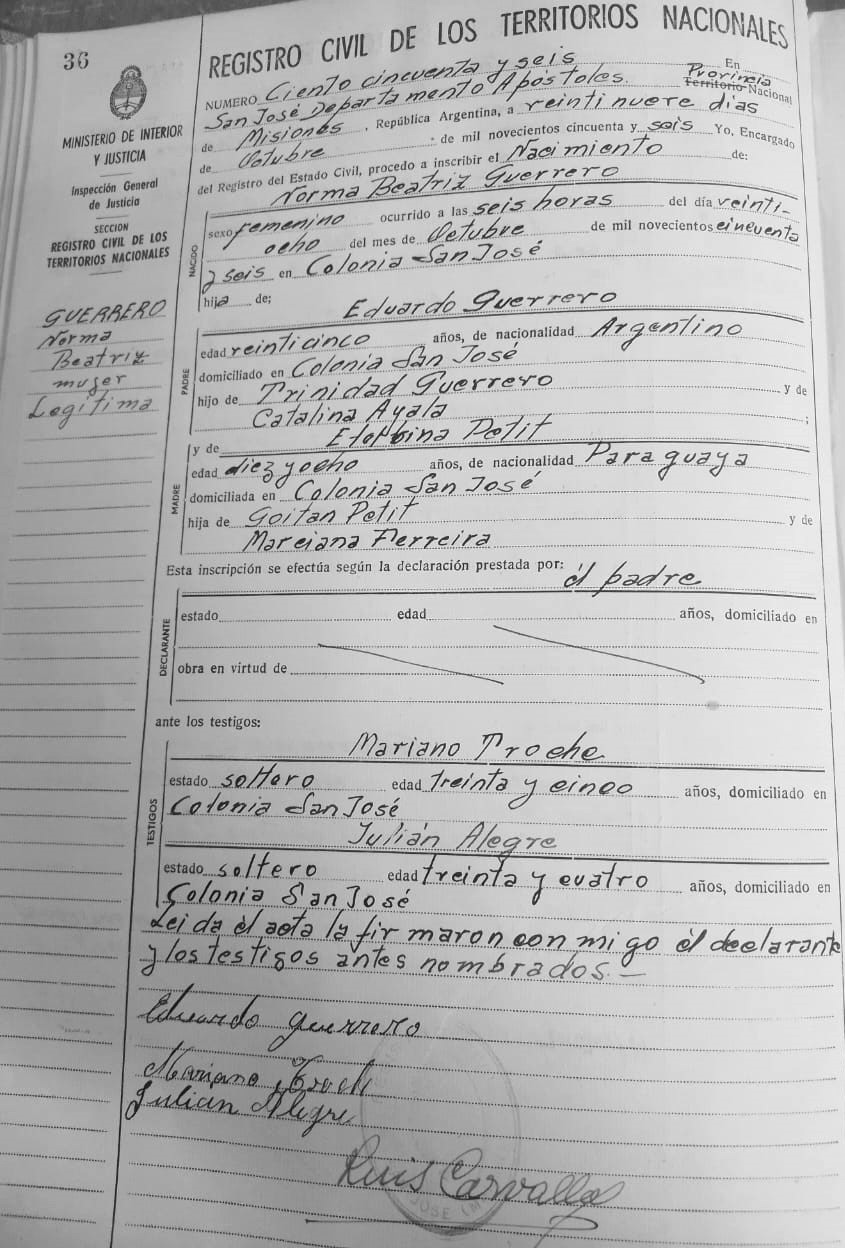 36
REGISTRO CIVIL DE LOS TERRITORIOS NACIONALES
MINISTERIO DE INTERIOR
Y JUSTICIA
Inspección General
de Justicia
SECCION
REGISTRO CIVIL DE LOS
TERRITORIOS NACIONALES
GUERRERO
Norma
Beatriz
muger
Legitima
NUMERO Ciento cincuenta y seis En
San José Departamento Apóstoles. Provincia Territorio Nacional
de Misiones, República Argentina, a veintinueve días
de Octubre de mil novecientos cincuenta y seis Yo, Encargado
del Registro del Estado Civil, procedo a inscribir el Nacimiento de:
Norma Beatriz Guerrero
NACIDO
sexo femenino ocurrido a las seis horas del día veinti-
ocho del mes de Octubre de mil novecientos cincuenta
y seis en Colonia San José
hija de;
Eduardo Guerrero
PADRE
edad veinticinco años, de nacionalidad Argentino
domiciliado en Colonia San José
hijo de Trinidad Guerrero y de
Catalina Ayala ;
y de Petit
MADRE
edad diez y ocho años, de nacionalidad Paraguaya
domiciliada en Colonia San José
hija de Goitan Petit y de
Marciana Ferreira
Esta inscripción se efectúa según la declaración prestada por: el padre
DECLARANTE
estado edad años, domiciliado en
obra en virtud de
ante los testigos:
Mariano Troche
TESTIGOS
estado soltero edad treinta y cinco años, domiciliado en
Colonia San José
Julián Alegre
estado soltero edad treinta y cuatro años, domiciliado en
Colonia San José
Leida el acta la firmaron conmigo el declarante
y los testigos antes nombrados.—
Eduardo Guerrero
Mariano Troche
Julian Alegre
Luis Carvallo